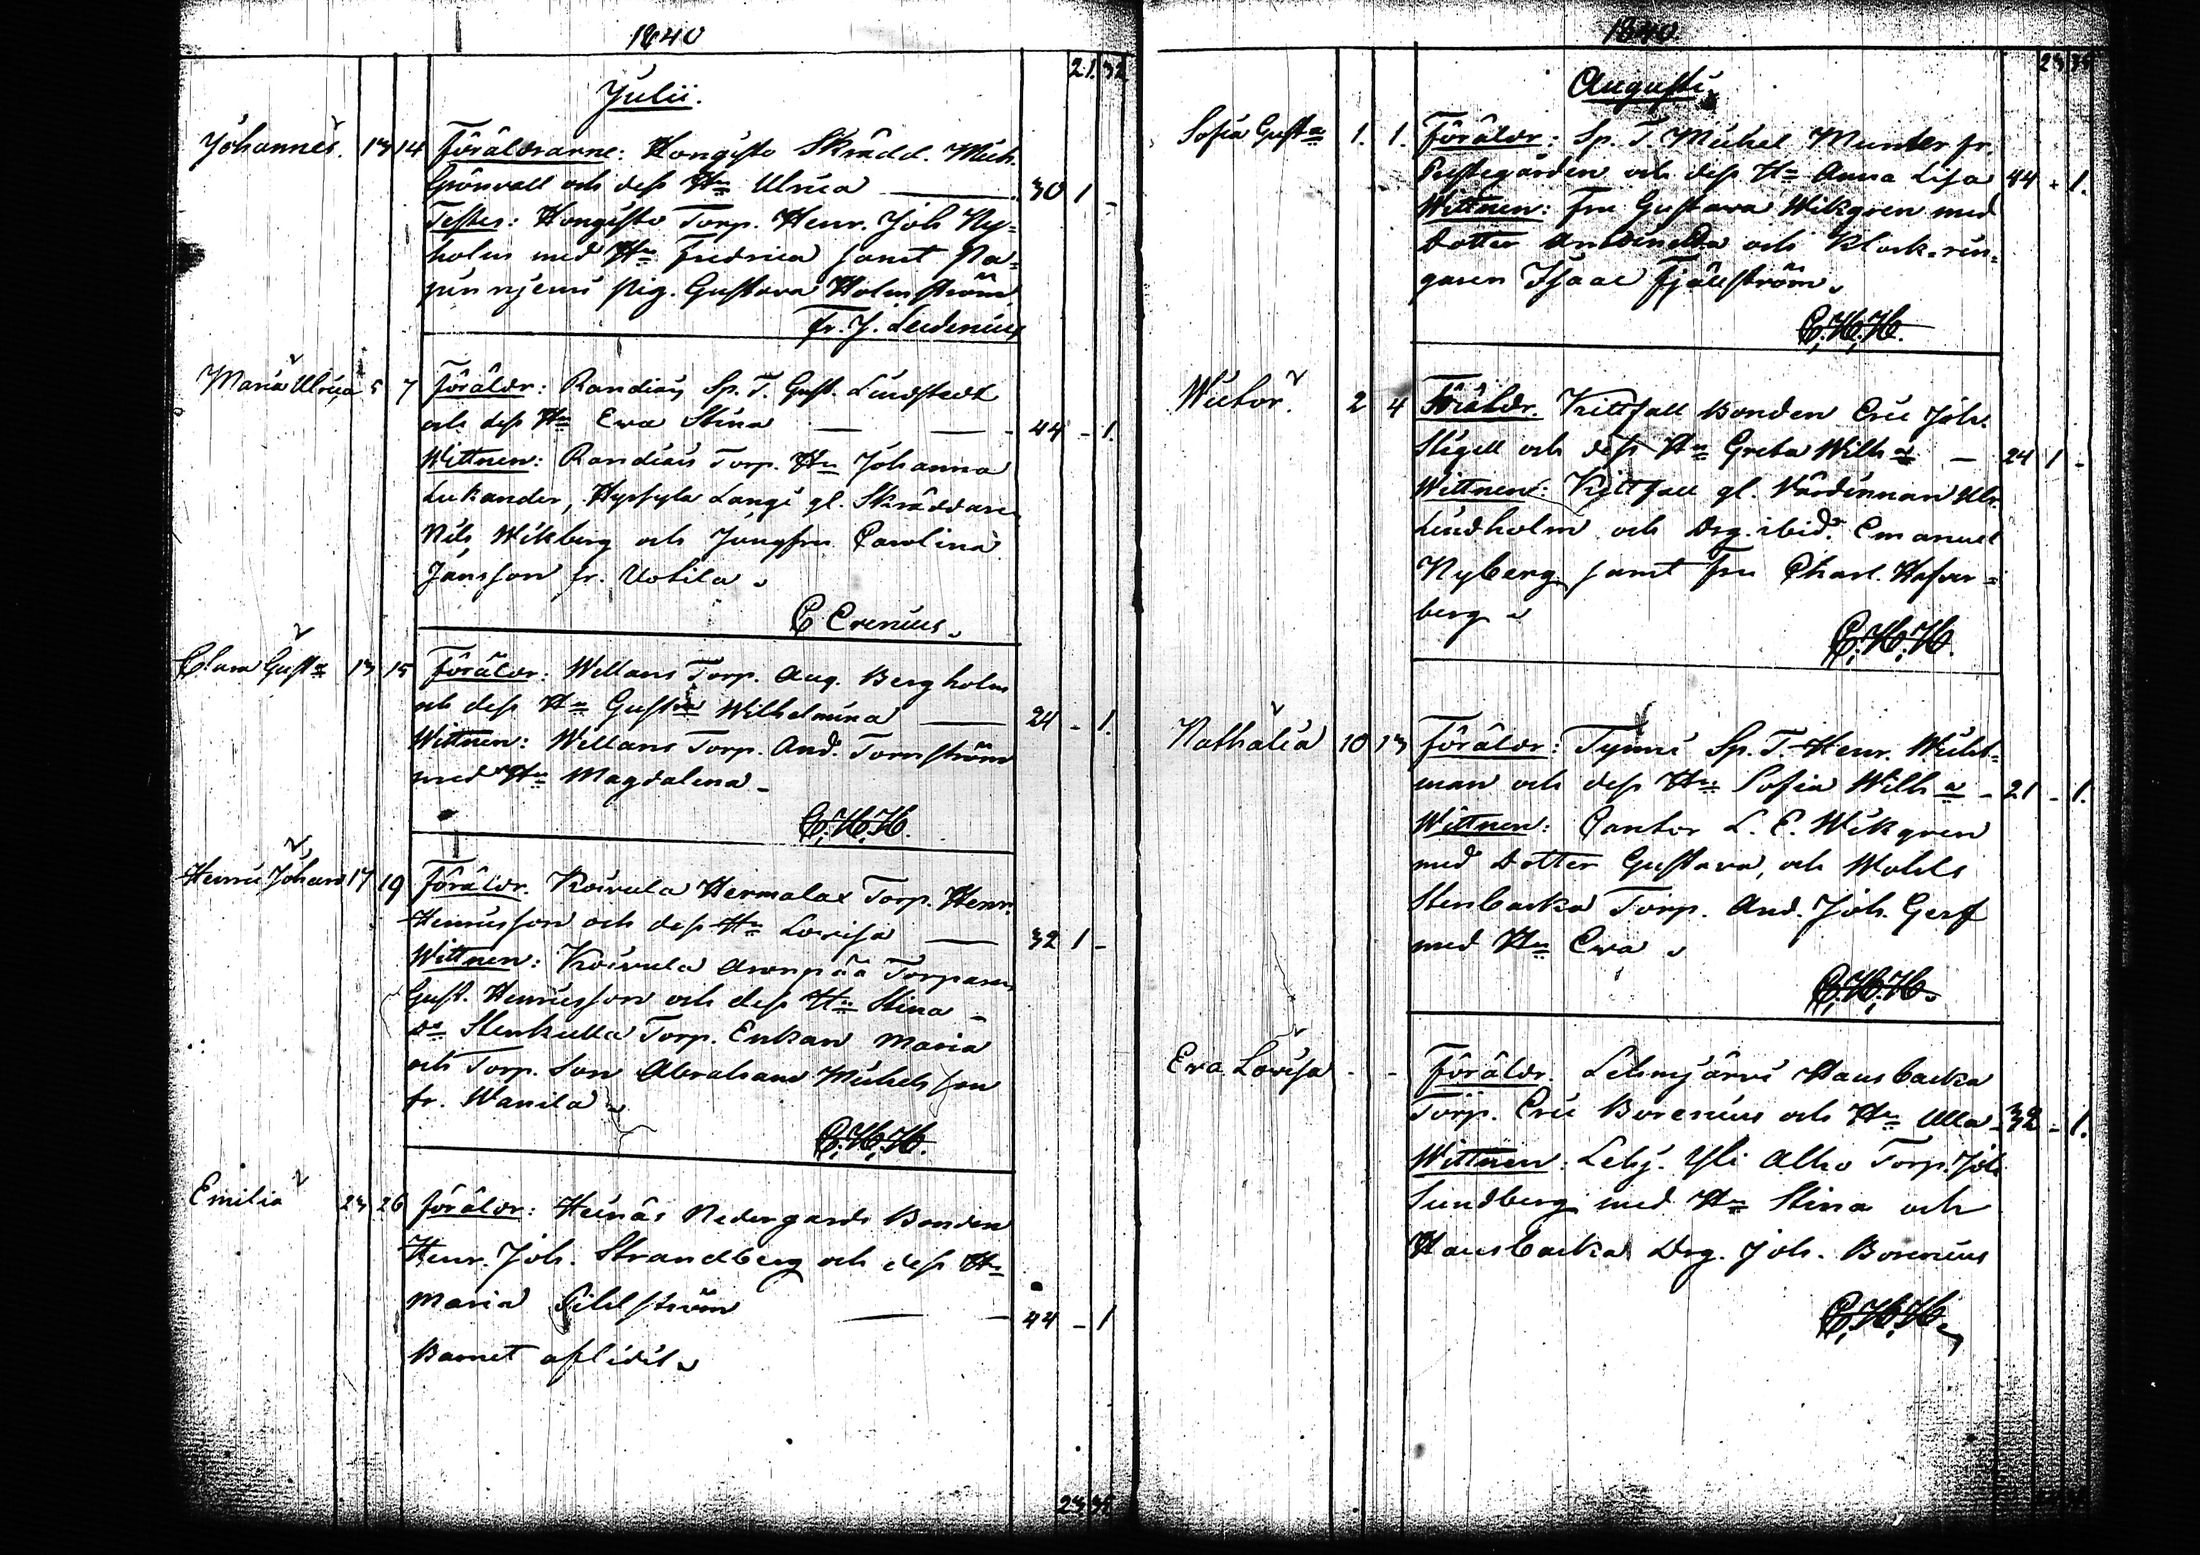 1840
21. 32
Julii.
Johannes. 13 14 Föräldrarne: Hongisto Skrädd. Mich.
Grönvall och dess Hu Ulrica — 30 1 -
Testes: Hongisto Torp. Henr. Joh Ny=
holm med Hu Fredrica samt
pig. Gustava Holmström
Fr. J. Leidenius
Maria Ulrica 5 7 Föräldr: Sp. T. Gust. Lindstedt
och dess Hu Eva Stina — — 44 - 1.
Wittnen: Torp. Hu Johanna
Lukander, Langi gl. Skräddaren
Nils Wikberg och Jungfru Carolina
Jansson fr. Uotila.
C Crenius.
Clara Gusta 13 15 Föräldr: Willans Torp. Aug. Bergholm
och dess Hu Gustva Wilhelmina — 24 - 1.
Wittnen: Willans Torp. And. Tornström
med Hu Magdalena -
C.H.H.
Henric Johan 17 19 Föräldr. Koivula Hermalax Torp. Henr.
Henricsson och dess Hu Lovisa — 32 1 -
Wittnen: Koivula Aronpää Torparen
Gust. Henricsson och dess Hu Stina -
Do Stenkulla Torp. Enkan Maria
och Torp. Son Abraham Michelsson
fr. Wanila
C.H.H.
Emilia 23 26 Föräldr: Heinäs Nedergårds Bonden
Henr. Joh. Strandberg och dess Hu
Maria — - 44 - 1
Barnet aflidit.
23 35
1840.
23 35
Augusti.
Sofia Gusta 1. 1. Föräldr: Sp. T. Michel Munter fr.
Prestegården och dess Hu Anna Lisa 44 - 1.
Wittnen: Fru Gustava Wikgren med
Dotter och Klock-rin=
garen Isaac Fjällström.
C.H.H.
Victor. 2 4 Föräldr. Kittfall Bonden Eric Joh.
Stigell och dess Hu Greta Wilha — 24 1 -
Wittnen: Kittfall gl. Värdinnan Ulr.
Lindholm och Drg. ibid. Emanuel
Nyberg samt Fru Charl. Hafver=
berg
C.H.H.
Nathalia 10 13 Föräldr: Tynni Sp. T. Henr. Wickt=
man och dess Hu Sofia Wilha - 21 - 1.
Wittnen: Cantor L. E. Wikgren
med Dotter Gustava, och Wohls
Stenbacka Torp. And. Joh. Gerff
med Hu Eva
C.H.H.
Eva Lovisa - - Föräldr. Lehmjärvi Hansbacka
Torp. Eric Borenius och Hu Ulla - 32 - 1.
Wittnen: Lehj. Yli Alho Torp. Joh
Sundberg med Hu Stina och
Hansbacka Drg. Joh. Borenius
C.H.H.